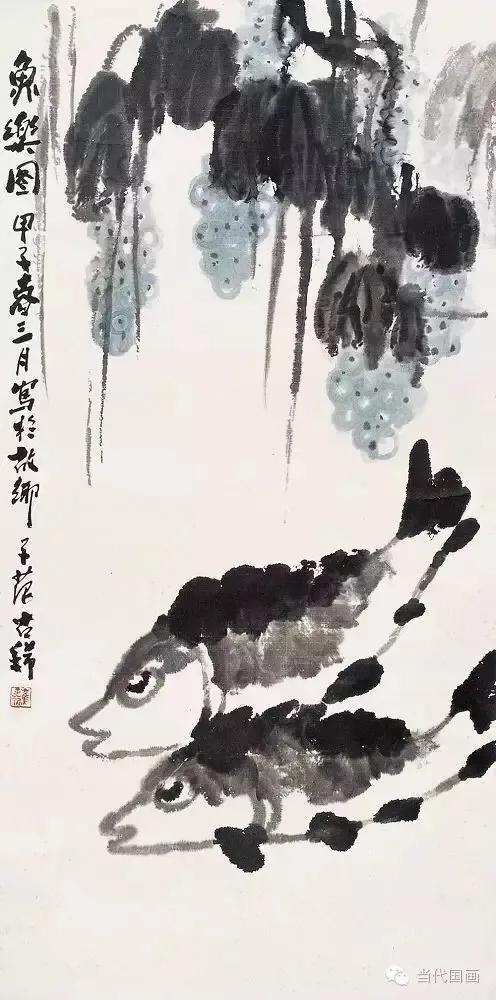 魚樂图 甲子春三月寫於故鄉 子范
当代国画